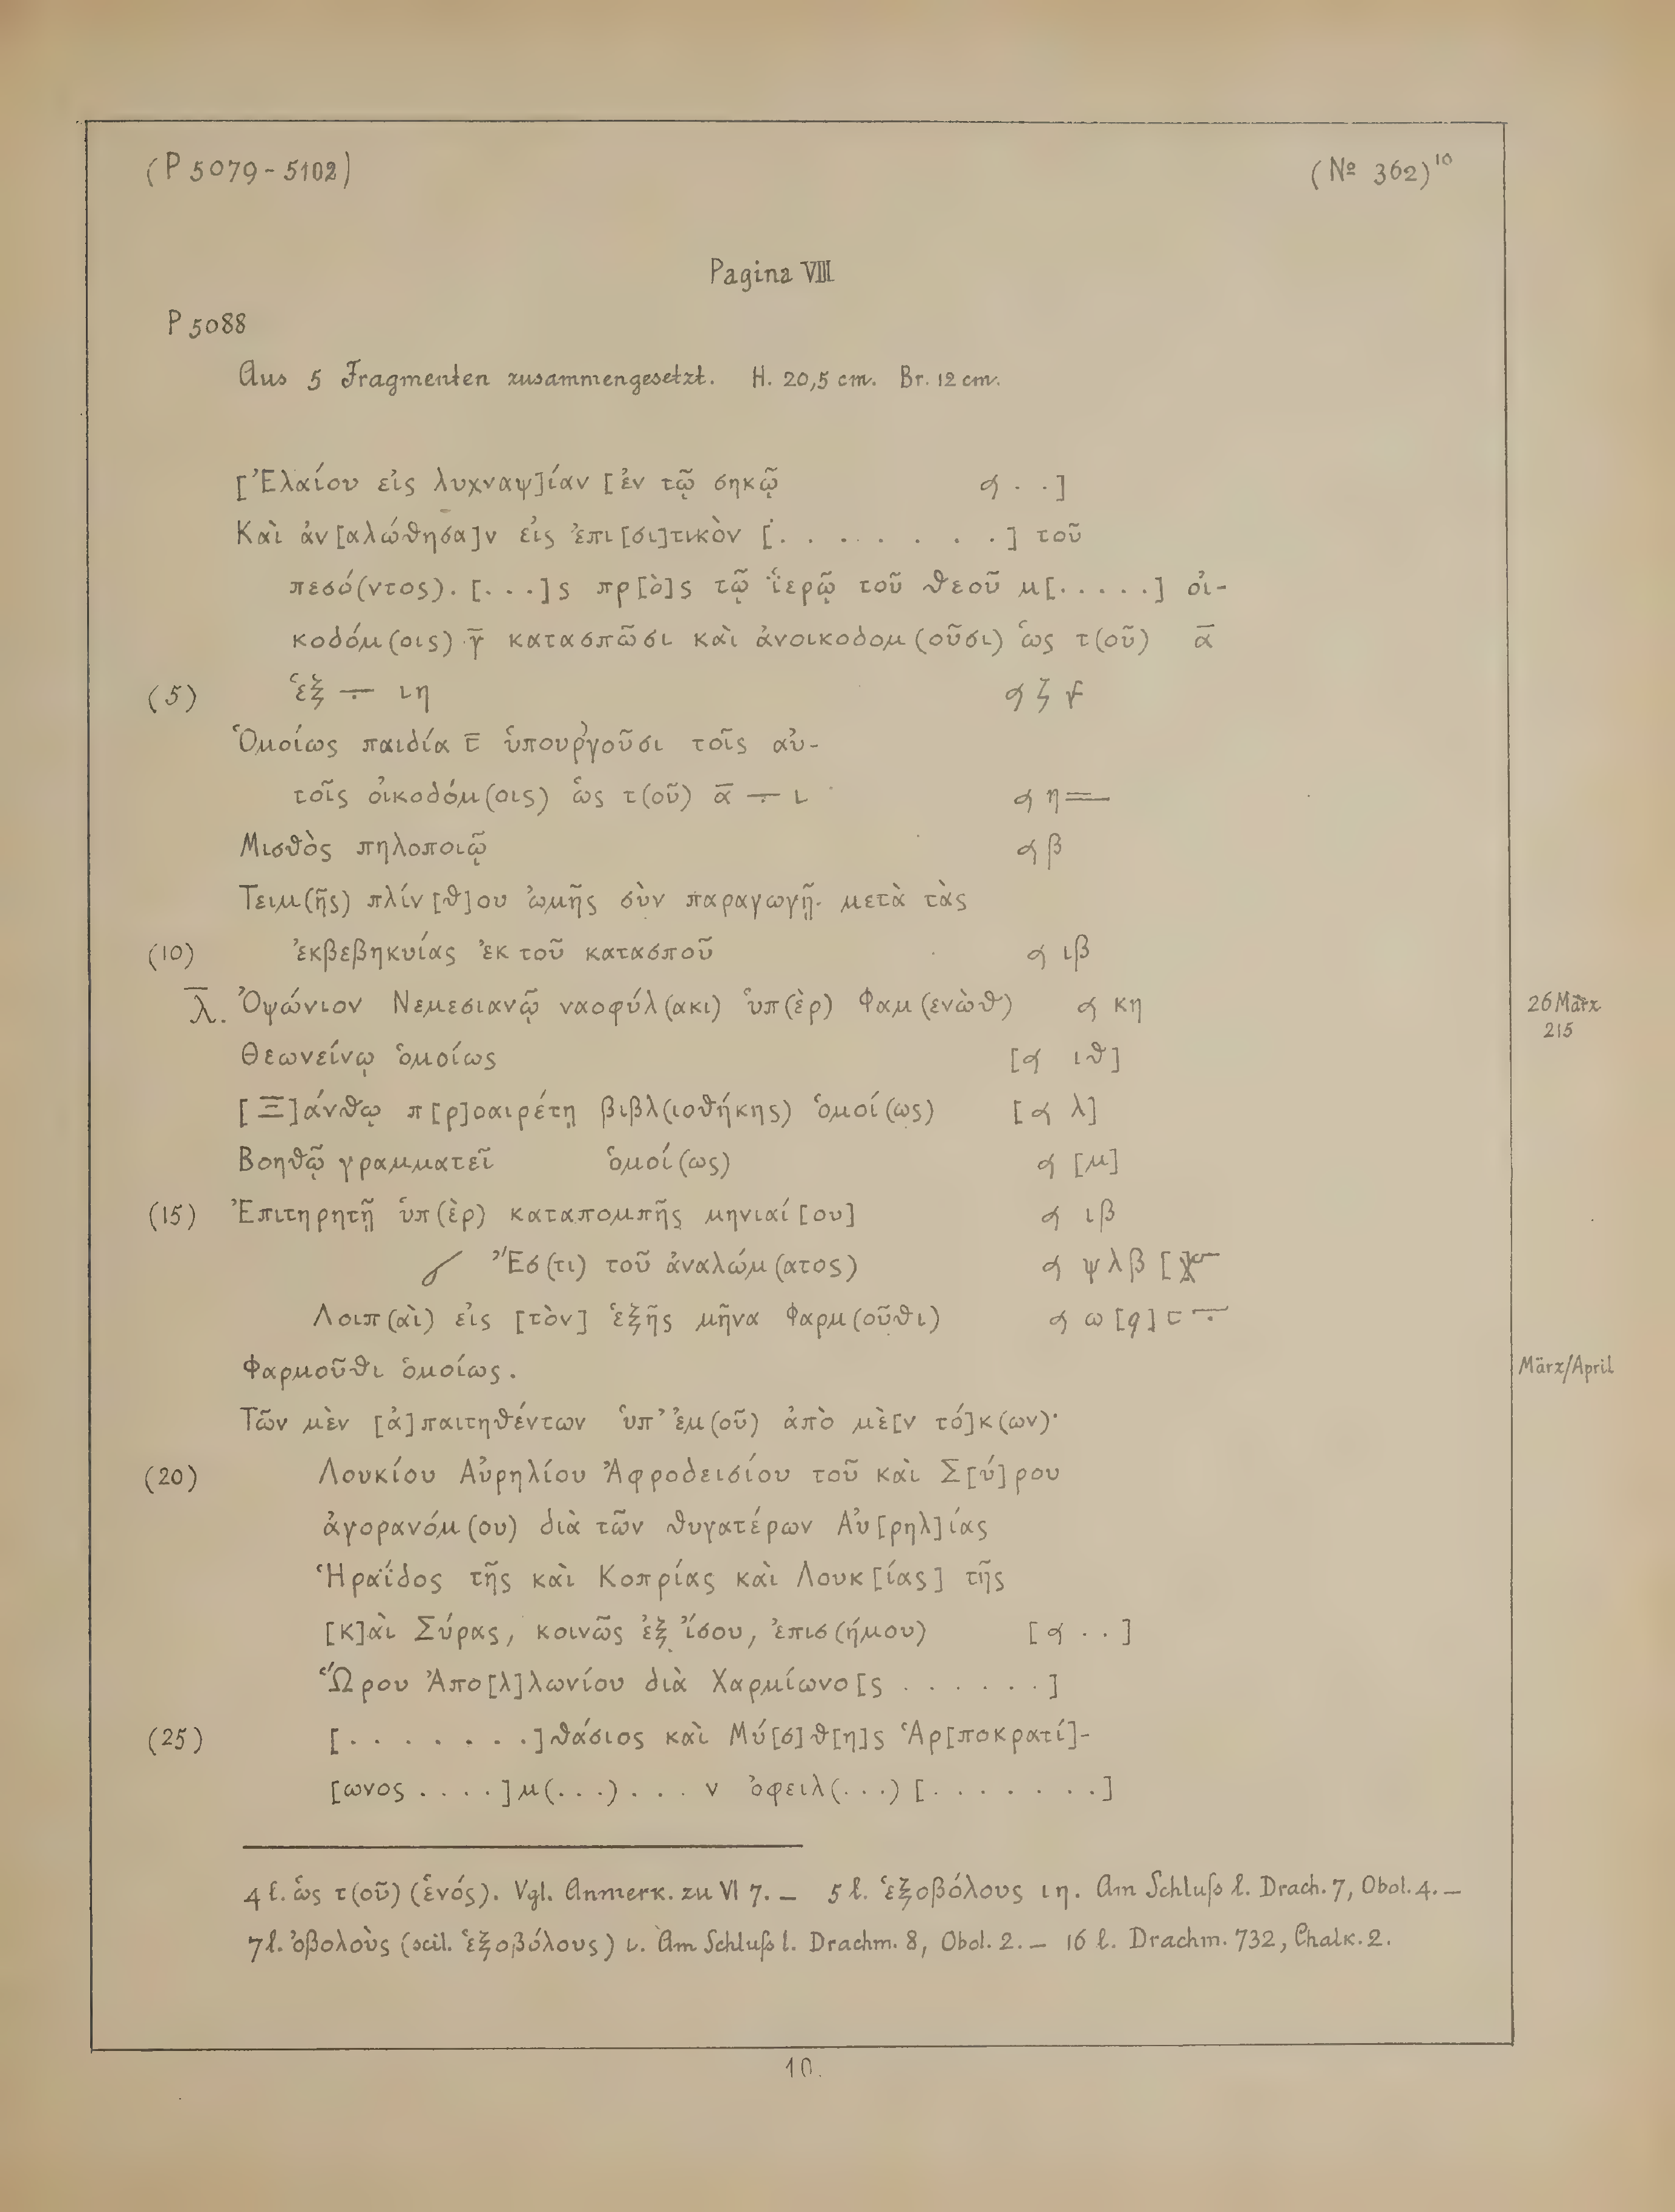 (P 5079-5102)
(Nº 362)¹⁰
Pagina VIII
P 5088
Aus 5 Fragmenten zusammengesetzt. H. 20,5 cm. Br. 12 cm.
[Ἐλαίου εἰς λυχναψ]ίαν [ἐν τῷ σηκῷ . .]
Καὶ ἀν[αλώθησα]ν εἰς ἐπι[σι]τικὸν [. . . . . . . .] τοῦ
πεσό(ντος). [. . .]ς πρ[ὸ]ς τῷ ἱερῷ τοῦ θεοῦ μ[. . . . .] οἰ-
κοδόμ(οις) γ̅ κατασπῶσι καὶ ἀνοικοδομ(οῦσι) ὡς τ(οῦ) α̅
(5) ἑξ ιη ζ
Ὁμοίως παιδία ε̅ ὑπουργοῦσι τοῖς αὐ-
τοῖς οἰκοδόμ(οις) ὡς τ(οῦ) α̅ ι η
Μισθὸς πηλοποιῷ β
Τειμ(ῆς) πλίν[θ]ου ὠμῆς σὺν παραγωγῇ μετὰ τὰς
(10) ἐκβεβηκυίας ἐκ τοῦ κατασποῦ ιβ
λ̅. Ὀψώνιον Νεμεσιανῷ ναοφύλ(ακι) ὑπ(ὲρ) Φαμ(ενὼθ) κη
26 März
215
Θεωνείνῳ ὁμοίως [ ιθ]
[Ξ]άνθῳ π[ρ]οαιρέτῃ βιβλ(ιοθήκης) ὁμοί(ως) [ λ]
Βοηθῷ γραμματεῖ ὁμοί(ως) [μ]
(15) Ἐπιτηρητῇ ὑπ(ὲρ) καταπομπῆς μηνιαί[ου] ιβ
Ἔσ(τι) τοῦ ἀναλώμ(ατος) ψλβ
Λοιπ(αὶ) εἰς [τὸν] ἑξῆς μῆνα Φαρμ(οῦθι) ω[ϙ]ε
Φαρμοῦθι ὁμοίως.
März/April
Τῶν μὲν [ἀ]παιτηθέντων ὑπ’ ἐμ(οῦ) ἀπὸ μὲ[ν τό]κ(ων)·
(20) Λουκίου Αὐρηλίου Ἀφροδεισίου τοῦ καὶ Σ[ύ]ρου
ἀγορανόμ(ου) διὰ τῶν θυγατέρων Αὐ[ρηλ]ίας
Ἡραΐδος τῆς καὶ Κοπρίας καὶ Λουκ[ίας] τῆς
[κ]αὶ Σύρας, κοινῶς ἐξ ἴσου, ἐπισ(ήμου) [ . .]
Ὥρου Ἀπο[λ]λωνίου διὰ Χαρμίωνο[ς . . . . . .]
(25) [. . . . . . .]θάσιος καὶ Μύ[σ]θ[η]ς Ἁρ[ποκρατί]-
[ωνος . . . .]μ(. . .) . . . ν ὀφειλ(. . .) [. . . . . . .]
4 l. ὡς τ(οῦ) (ἑνός). Vgl. Anmerk. zu VI 7. — 5 l. ἑξοβόλους ιη. Am Schluſs l. Drach. 7, Obol. 4. —
7 l. ὀβολοὺς (scil. ἑξοβόλους) ι. Am Schluſs l. Drachm. 8, Obol. 2. — 16 l. Drachm. 732, Chalk. 2.
10.